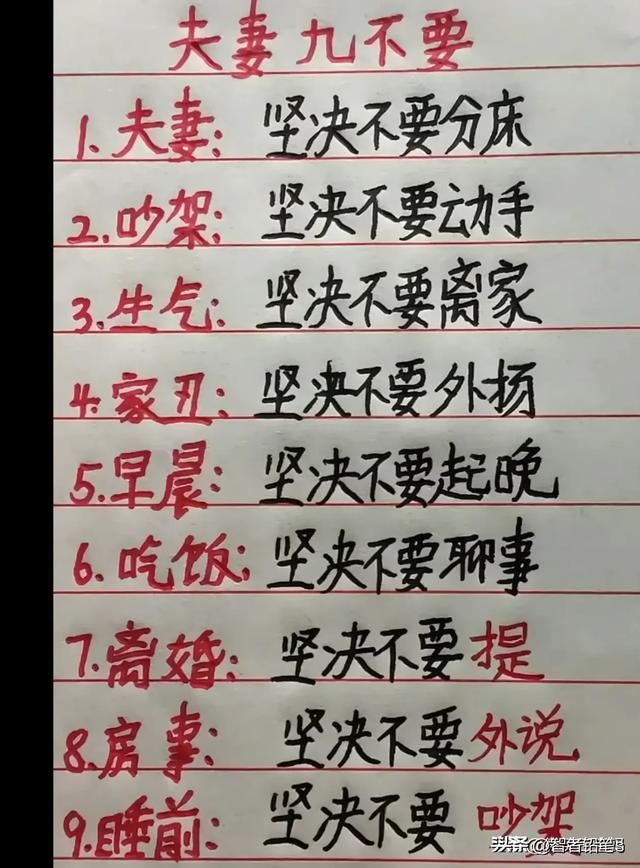 夫妻九不要
1. 夫妻: 坚决不要分床
2. 吵架: 坚决不要动手
3. 生气: 坚决不要离家
4. 家丑: 坚决不要外扬
5. 早晨: 坚决不要起晚
6. 吃饭: 坚决不要聊事
7. 离婚: 坚决不要提
8. 房事: 坚决不要外说
9. 睡前: 坚决不要吵架
头条@智者铅笔